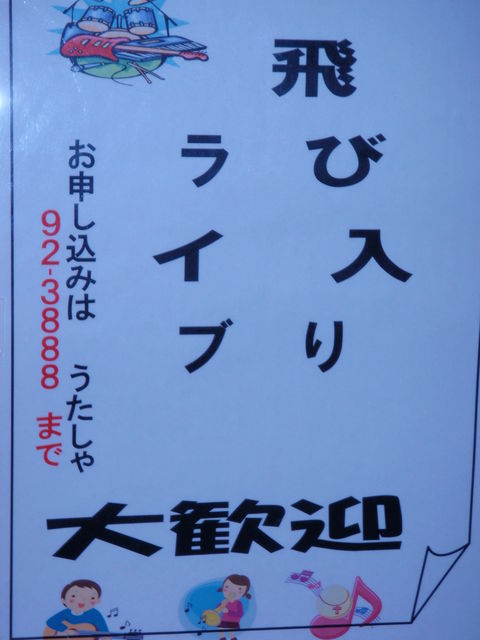 飛び入り
ライブ
お申し込みは うたしゃ
92-3888 まで
大歓迎